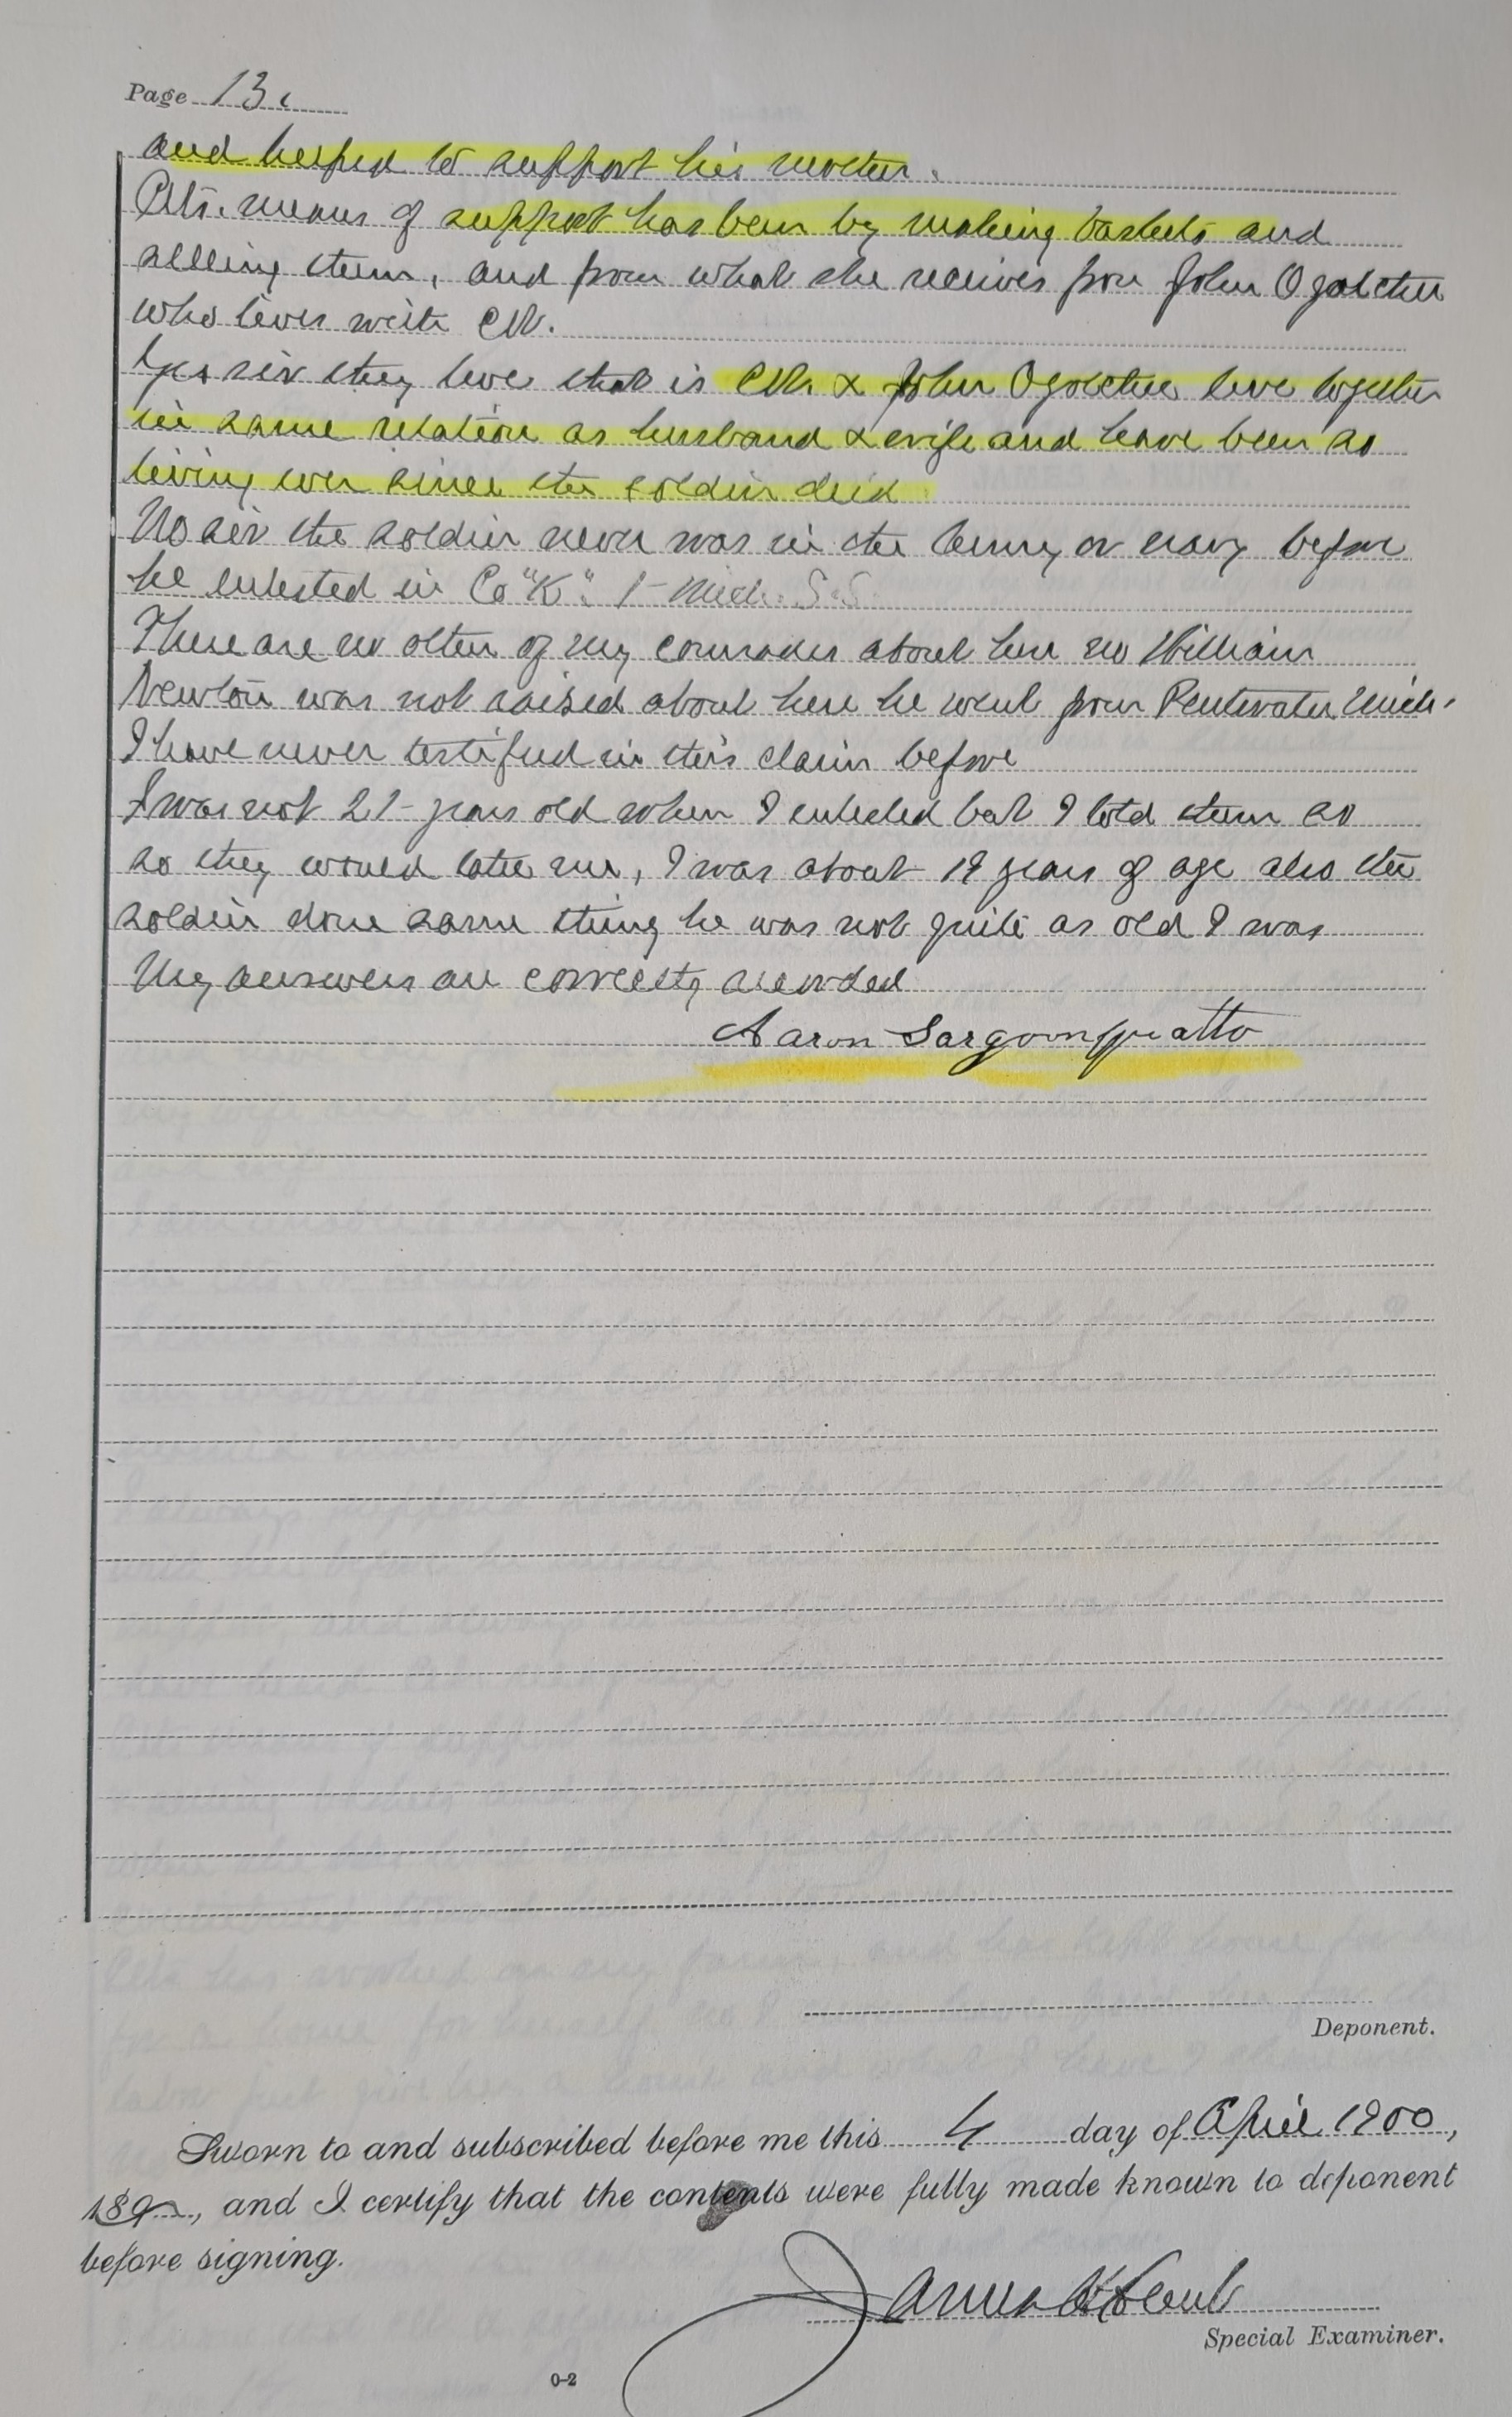 Page 13
and helped to support his mother.
Clt's. means of support has been by making baskets and
selling them, and from what she receives from John
who lives with Clt.
Yes sir they live that is Clt. & John live together
in same relation as husband & wife and have been so
living ever since the soldier died
No sir the soldier never was in the Army or navy before
he enlisted in Co "K" 1- Mich. S.S.
There are no other of my comrades about here no William
Newton was not raised about here he went from Pentwater Mich.
I have never testified in this claim before
I was not 21- years old when I enlisted but I told them so
so they would take me, I was about 19 years of age also the
soldier done same thing he was not quite as old I was
My answers are correctly recorded
Aaron Sargonquatto
Deponent.
Sworn to and subscribed before me this 4 day of April 1900,
189, and I certify that the contents were fully made known to deponent
before signing.
Special Examiner.
0-2